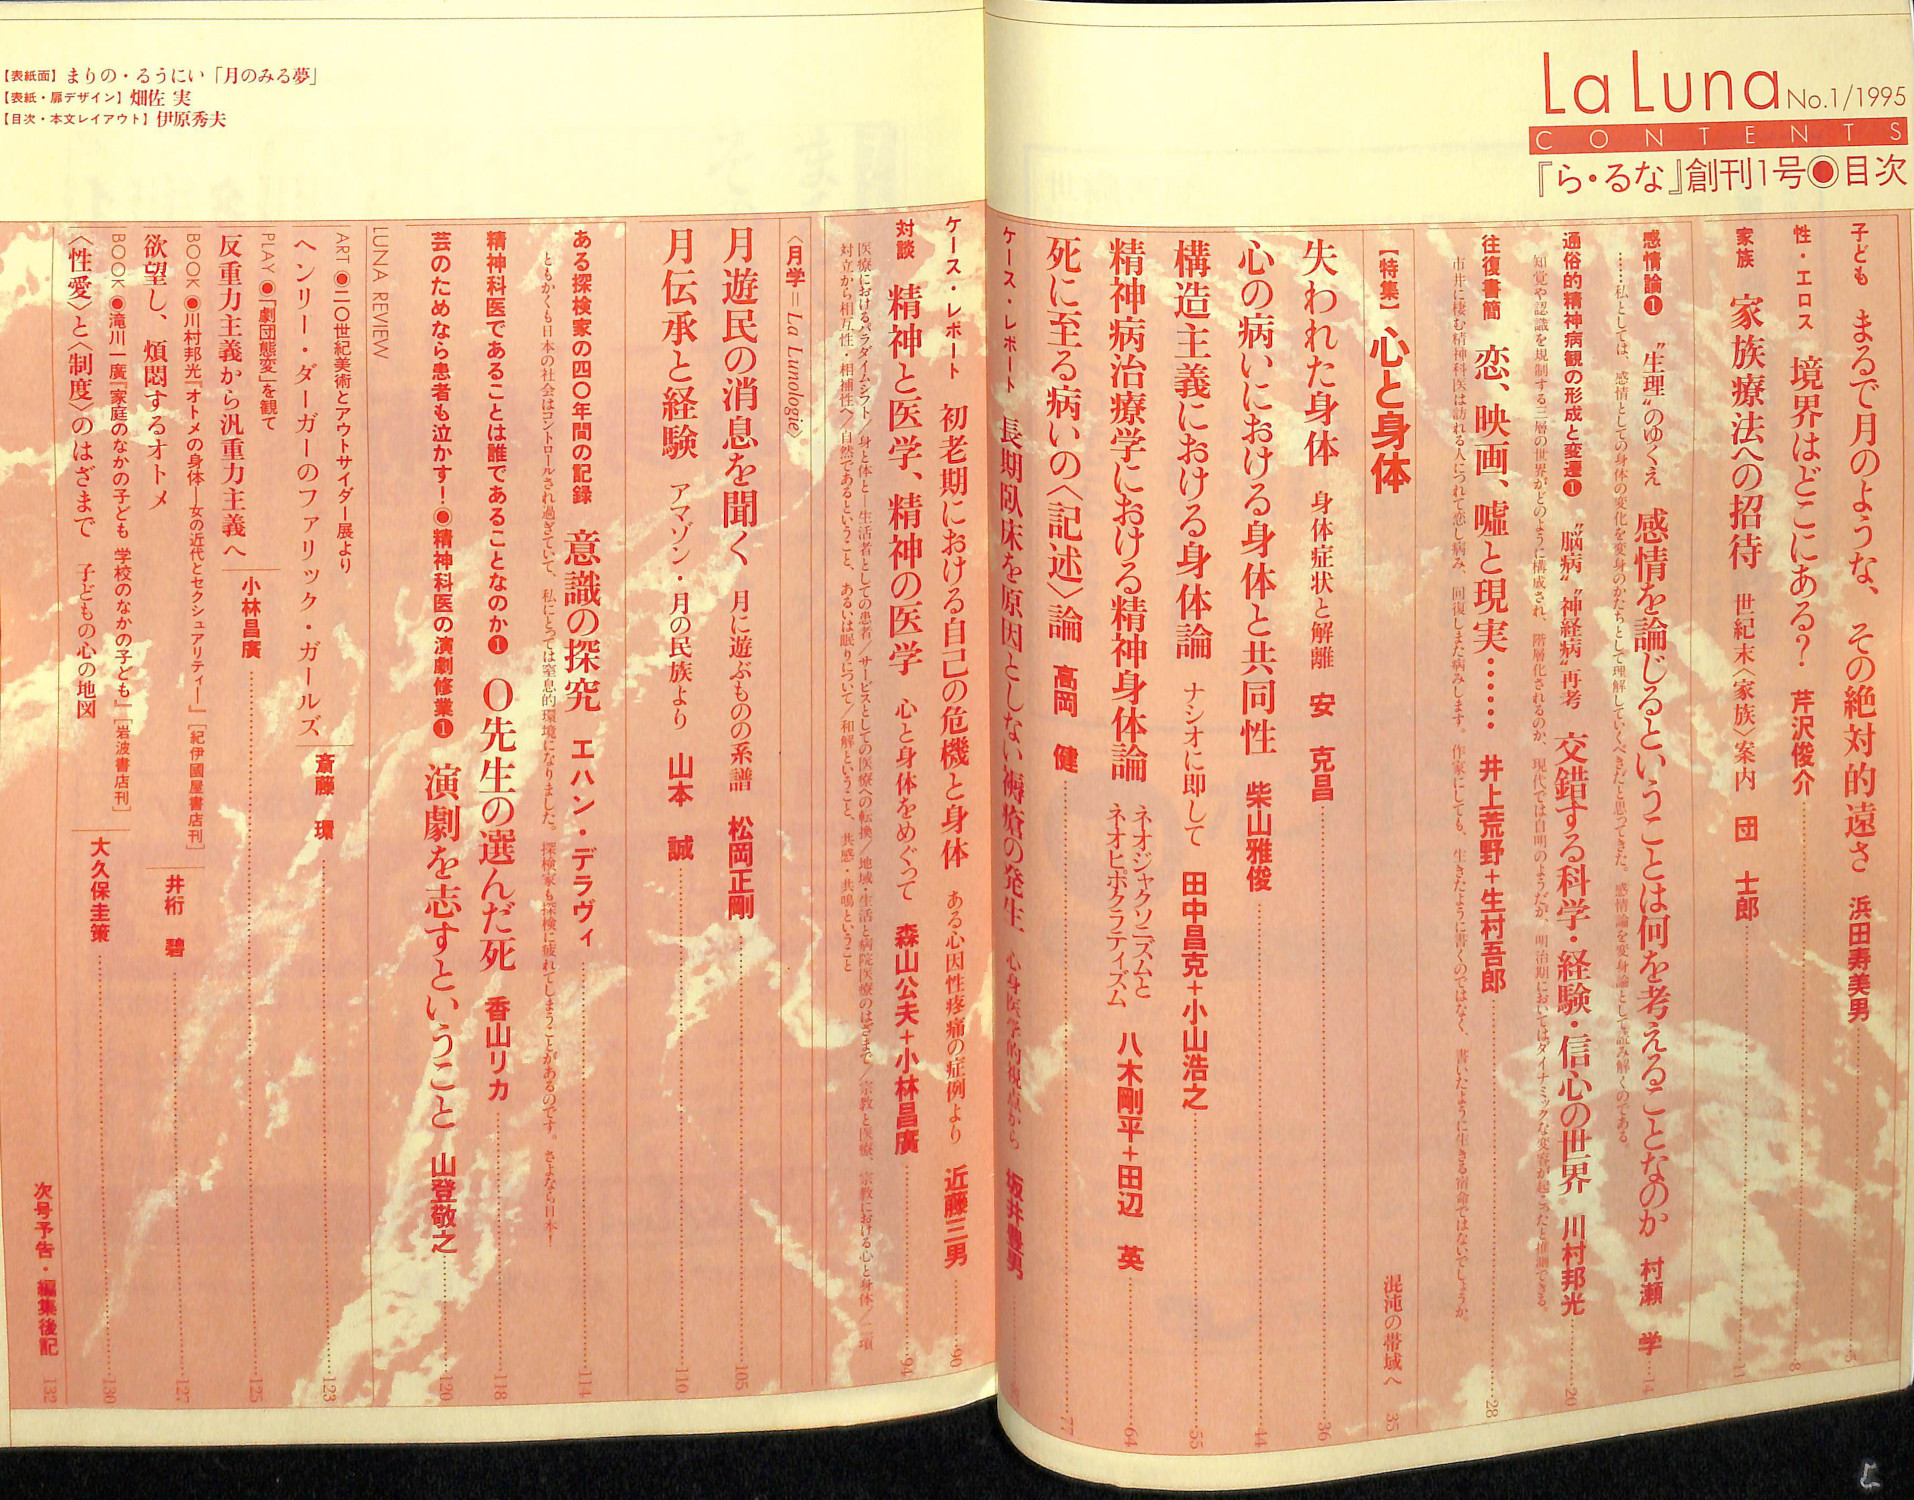 La Luna No.1/1995
CONTENTS
『ら・るな』創刊1号◉目次
子ども まるで月のような、その絶対的遠さ 浜田寿美男 5
性・エロス 境界はどこにある? 芹沢俊介 8
家族 家族療法への招待 世紀末〈家族〉案内 団 士郎 11
感情論❶ “生理”のゆくえ 感情を論じるということは何を考えることなのか 村瀬 学 14
……私としては、感情としての身体の変化を変身のかたちとして理解していくべきだと思ってきた。感情論を変身論として読み解くのである。
通俗的精神病観の形成と変遷❶ “脳病”“神経病”再考 交錯する科学・経験・信心の世界 川村邦光 20
知覚や認識を規制する三層の世界がどのように構成され、階層化されるのか、現代では自明のようだが、明治期においてはダイナミックな変容が起こったと推測できる。
往復書簡 恋、映画、嘘と現実…… 井上荒野+生村吾郎 28
市井に棲む精神科医は訪れる人につれて恋し病み、回復しまた病みします。作家にしても、生きたように書くのではなく、書いたように生きる宿命ではないでしょうか。
【特集】心と身体 混沌の帯域へ 35
失われた身体 身体症状と解離 安 克昌 36
心の病いにおける身体と共同性 柴山雅俊 44
構造主義における身体論 ナシオに即して 田中昌克+小山浩之 55
精神病治療学における精神身体論 ネオジャクソニズムと
ネオヒポクラティズム 八木剛平+田辺 英 64
死に至る病いの〈記述〉論 高岡 健 77
ケース・レポート 長期臥床を原因としない褥瘡の発生 心身医学的視点から 坂井豊男
ケース・レポート 初老期における自己の危機と身体 ある心因性疼痛の症例より 近藤三男 90
対談 精神と医学、精神の医学 心と身体をめぐって 森山公夫+小林昌廣 94
医療におけるパラダイムシフト/身と体と―生活者としての患者/サービスとしての医療への転換/地域・生活と病院医療のはざまで/宗教と医療、宗教における心と身体/二項
対立から相互性・相補性へ/自然であるということ、あるいは眠りについて/和解ということ、共感・共鳴ということ
〈月学=La Lunologie〉
月遊民の消息を聞く 月に遊ぶものの系譜 松岡正剛 105
月伝承と経験 アマゾン・月の民族より 山本 誠 110
ある探検家の四〇年間の記録 意識の探究 エハン・デラヴィ 114
ともかくも日本の社会はコントロールされ過ぎていて、私にとっては窒息的環境になりました。探検家も探検に疲れてしまうことがあるのです。さよなら日本!
精神科医であることは誰であることなのか❶ O先生の選んだ死 香山リカ 118
芸のためなら患者も泣かす!◉精神科医の演劇修業❶ 演劇を志すということ 山登敬之 120
LUNA REVIEW
ART◉二〇世紀美術とアウトサイダー展より
ヘンリー・ダーガーのファリック・ガールズ 斎藤 環 123
PLAY◉「劇団態変」を観て
反重力主義から汎重力主義へ 小林昌廣 125
BOOK◉川村邦光『オトメの身体―女の近代とセクシュアリティ―』[紀伊國屋書店刊]
欲望し、煩悶するオトメ 井桁 碧 127
BOOK◉滝川一廣『家庭のなかの子ども 学校のなかの子ども』[岩波書店刊]
〈性愛〉と〈制度〉のはざまで 子どもの心の地図 大久保圭策 130
次号予告・編集後記 132
【表紙面】まりの・るうにい「月のみる夢」
【表紙・扉デザイン】畑佐 実
【目次・本文レイアウト】伊原秀夫